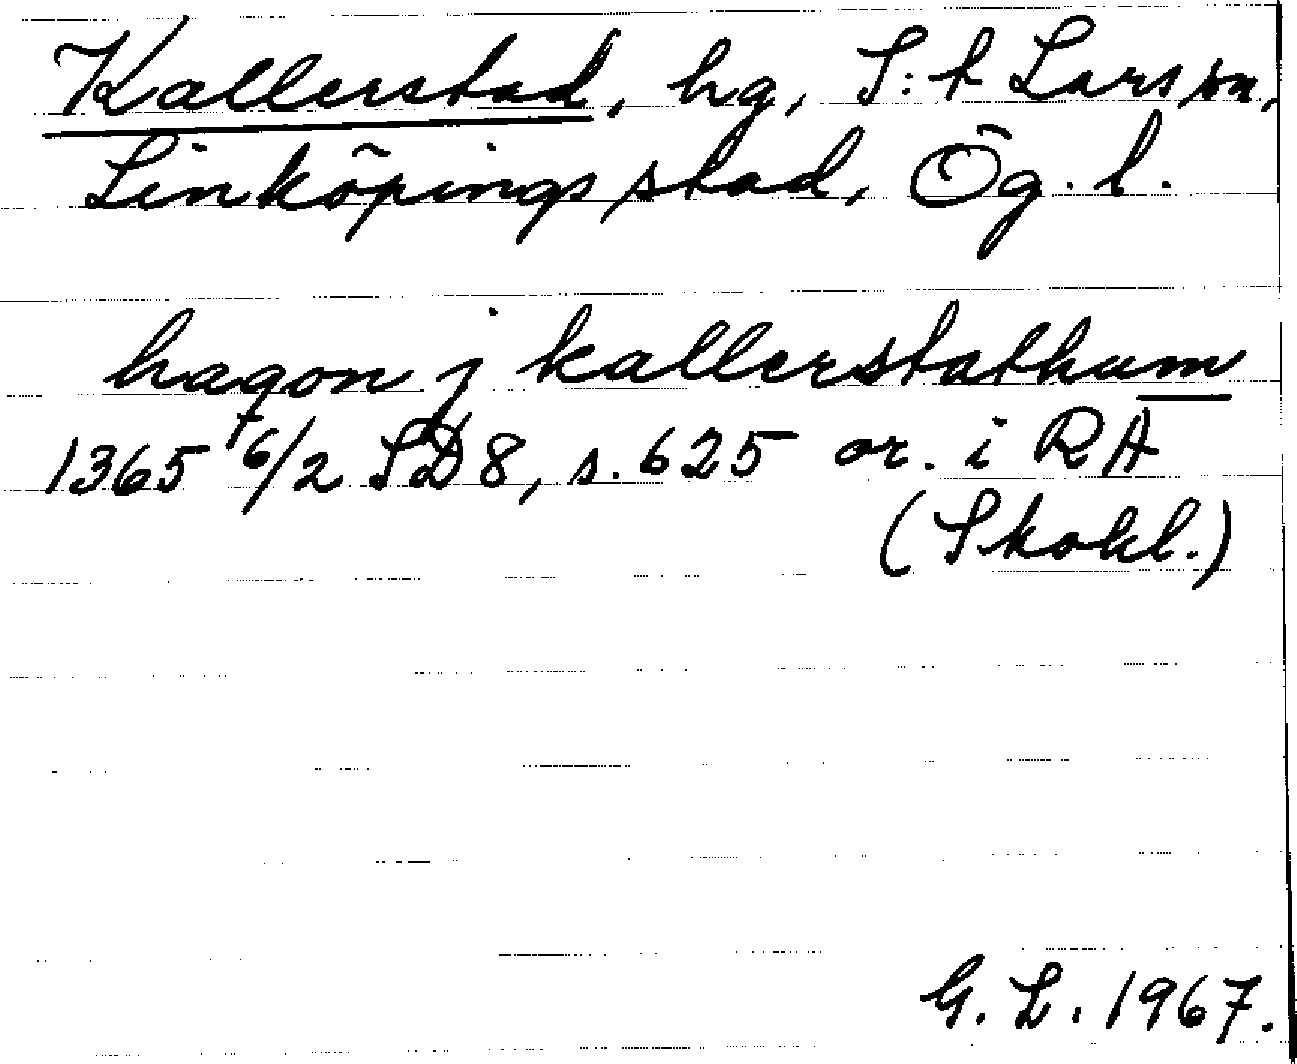 Kallerstad, hg, S:t Lars sn,
Linköpings stad, Ög. l.
haqon j kallerstathum
1365 6/2 SD 8, s. 625 or. i RA
(Skokl.)
G. L. 1967.